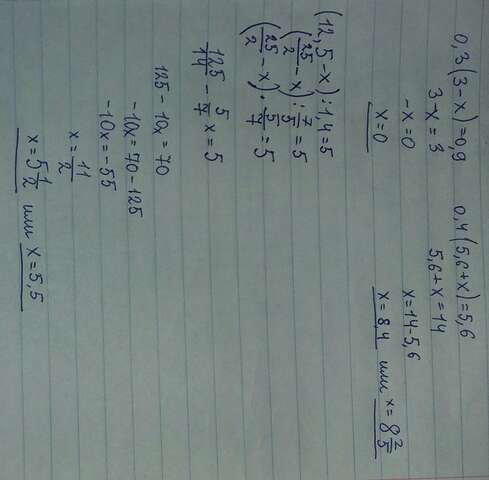 0,3(3-x)=0,9
3-x=3
-x=0
x=0
0,4(5,6+x)=5,6
5,6+x=14
x=14-5,6
x=8,4 или x=8 2/5
(12,5-x):1,4=5
(25/2-x):7/5=5
(25/2-x)·5/7=5
125/14-5/7x=5
125-10x=70
-10x=70-125
-10x=-55
x=11/2
x=5 1/2 или x=5,5